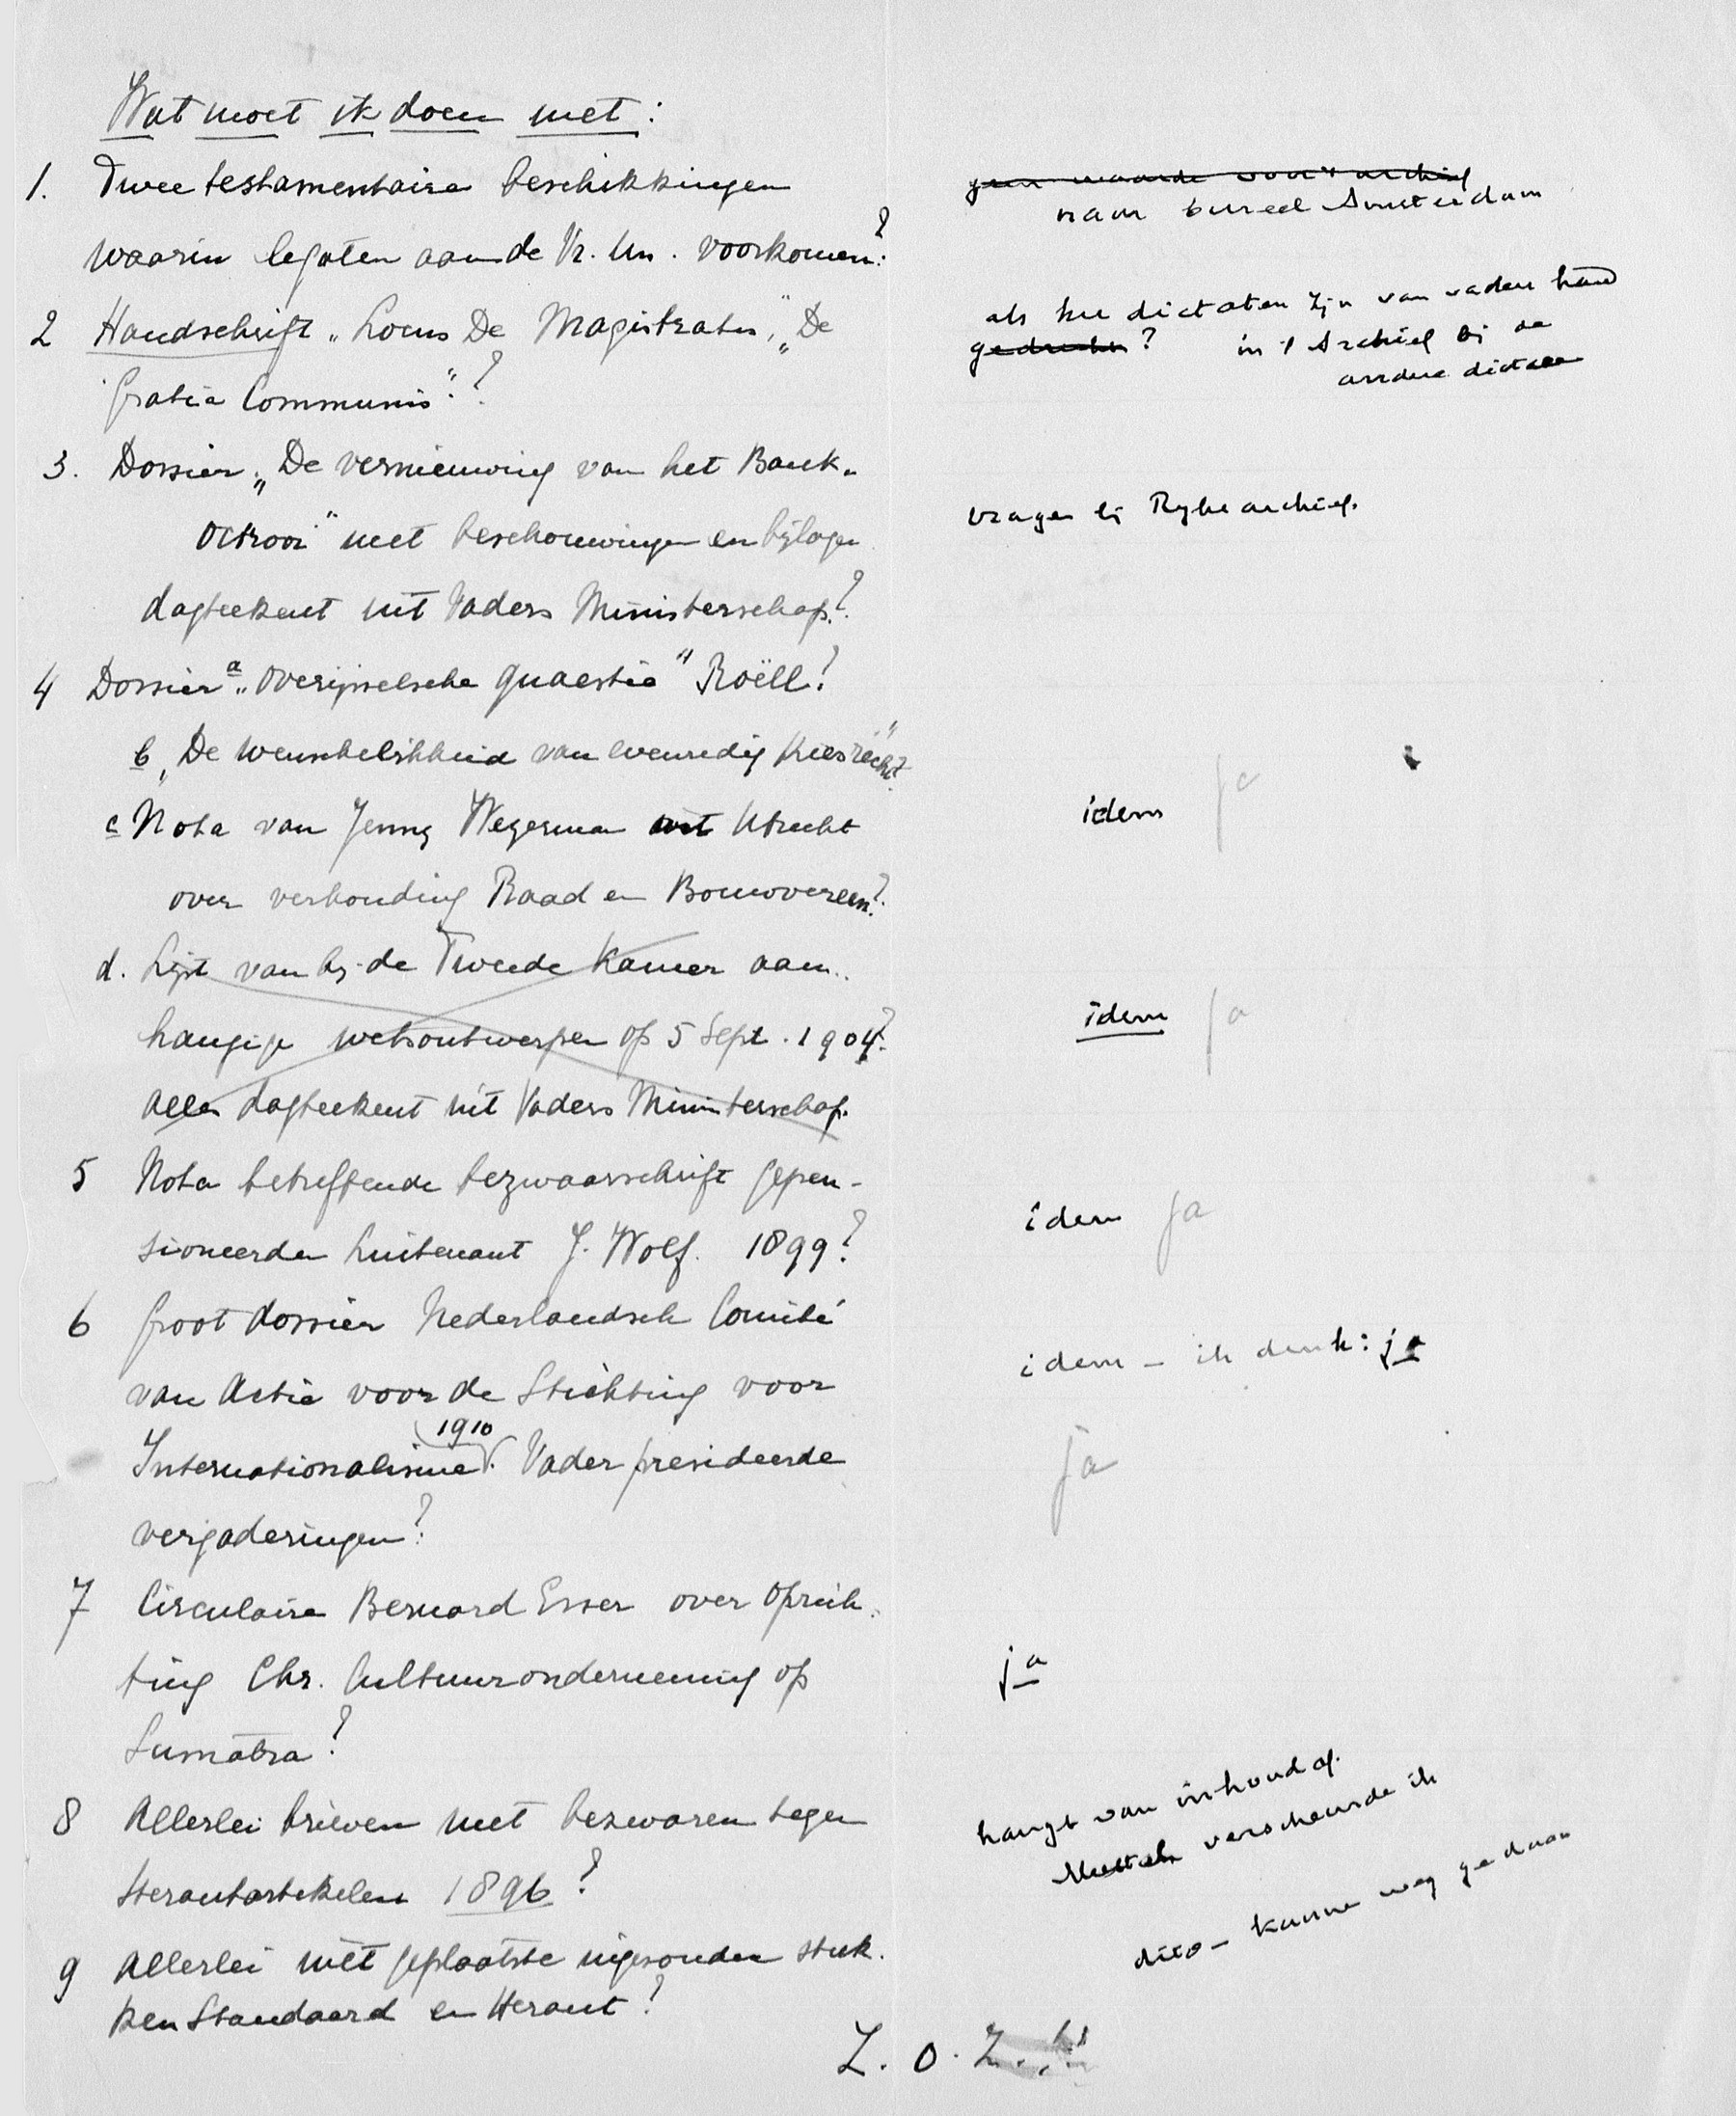 Wat moet ik doen met:
1. Twee testamentaire beschikkingen
waarin legaten aan de Vr. Un. voorkomen?
geen waarde voor 't archief
naar bureel Amsterdam
2 Handschrift „Locus De Magistratu", „De
Gratia Communis".?
als het dictaten zijn van vaders hand
? in 't Archief bij de
andere dictaten
3. Dossier „De vernieuwing van het Bank-
Octrooi" met beschouwingen en bijlagen
dagteekent uit Vaders Ministerschap?
vragen bij Rijksarchief.
4 Dossier a „Overijselsche quaestie" Roëll?
b „De wenschelijkheid van evenredig kiesrecht"?
c Nota van Jenny Wegerman uit Utrecht
over verhouding Raad en Bouwvereen?
idem ja
d. Lijst van bij de Tweede Kamer aan-
hangige wetsontwerpen op 5 Sept. 1904?
Alles dagteekent uit Vaders Ministerschap.
idem ja
5 Nota betreffende bezwaarschrift gepen-
sioneerden luitenant J. Wolf. 1899?
idem ja
6 Groot dossier Nederlandsch Comité
van Actie voor de Stichting voor
Internationalisme (1910). Vader presideerde
vergaderingen?
idem – ik denk: ja
ja
7 Circulaire Bernard Esser over oprich-
ting Chr. Cultuuronderneming op
Sumatra?
ja
8 Allerlei brieven met bezwaren tegen
Herautartikelen 1896?
hangt van inhoud af.
verscheurde ik
9 Allerlei niet geplaatste ingezonden stuk-
ken Standaard en Heraut?
dito – kunnen weg gedaan
Z. O. Z.